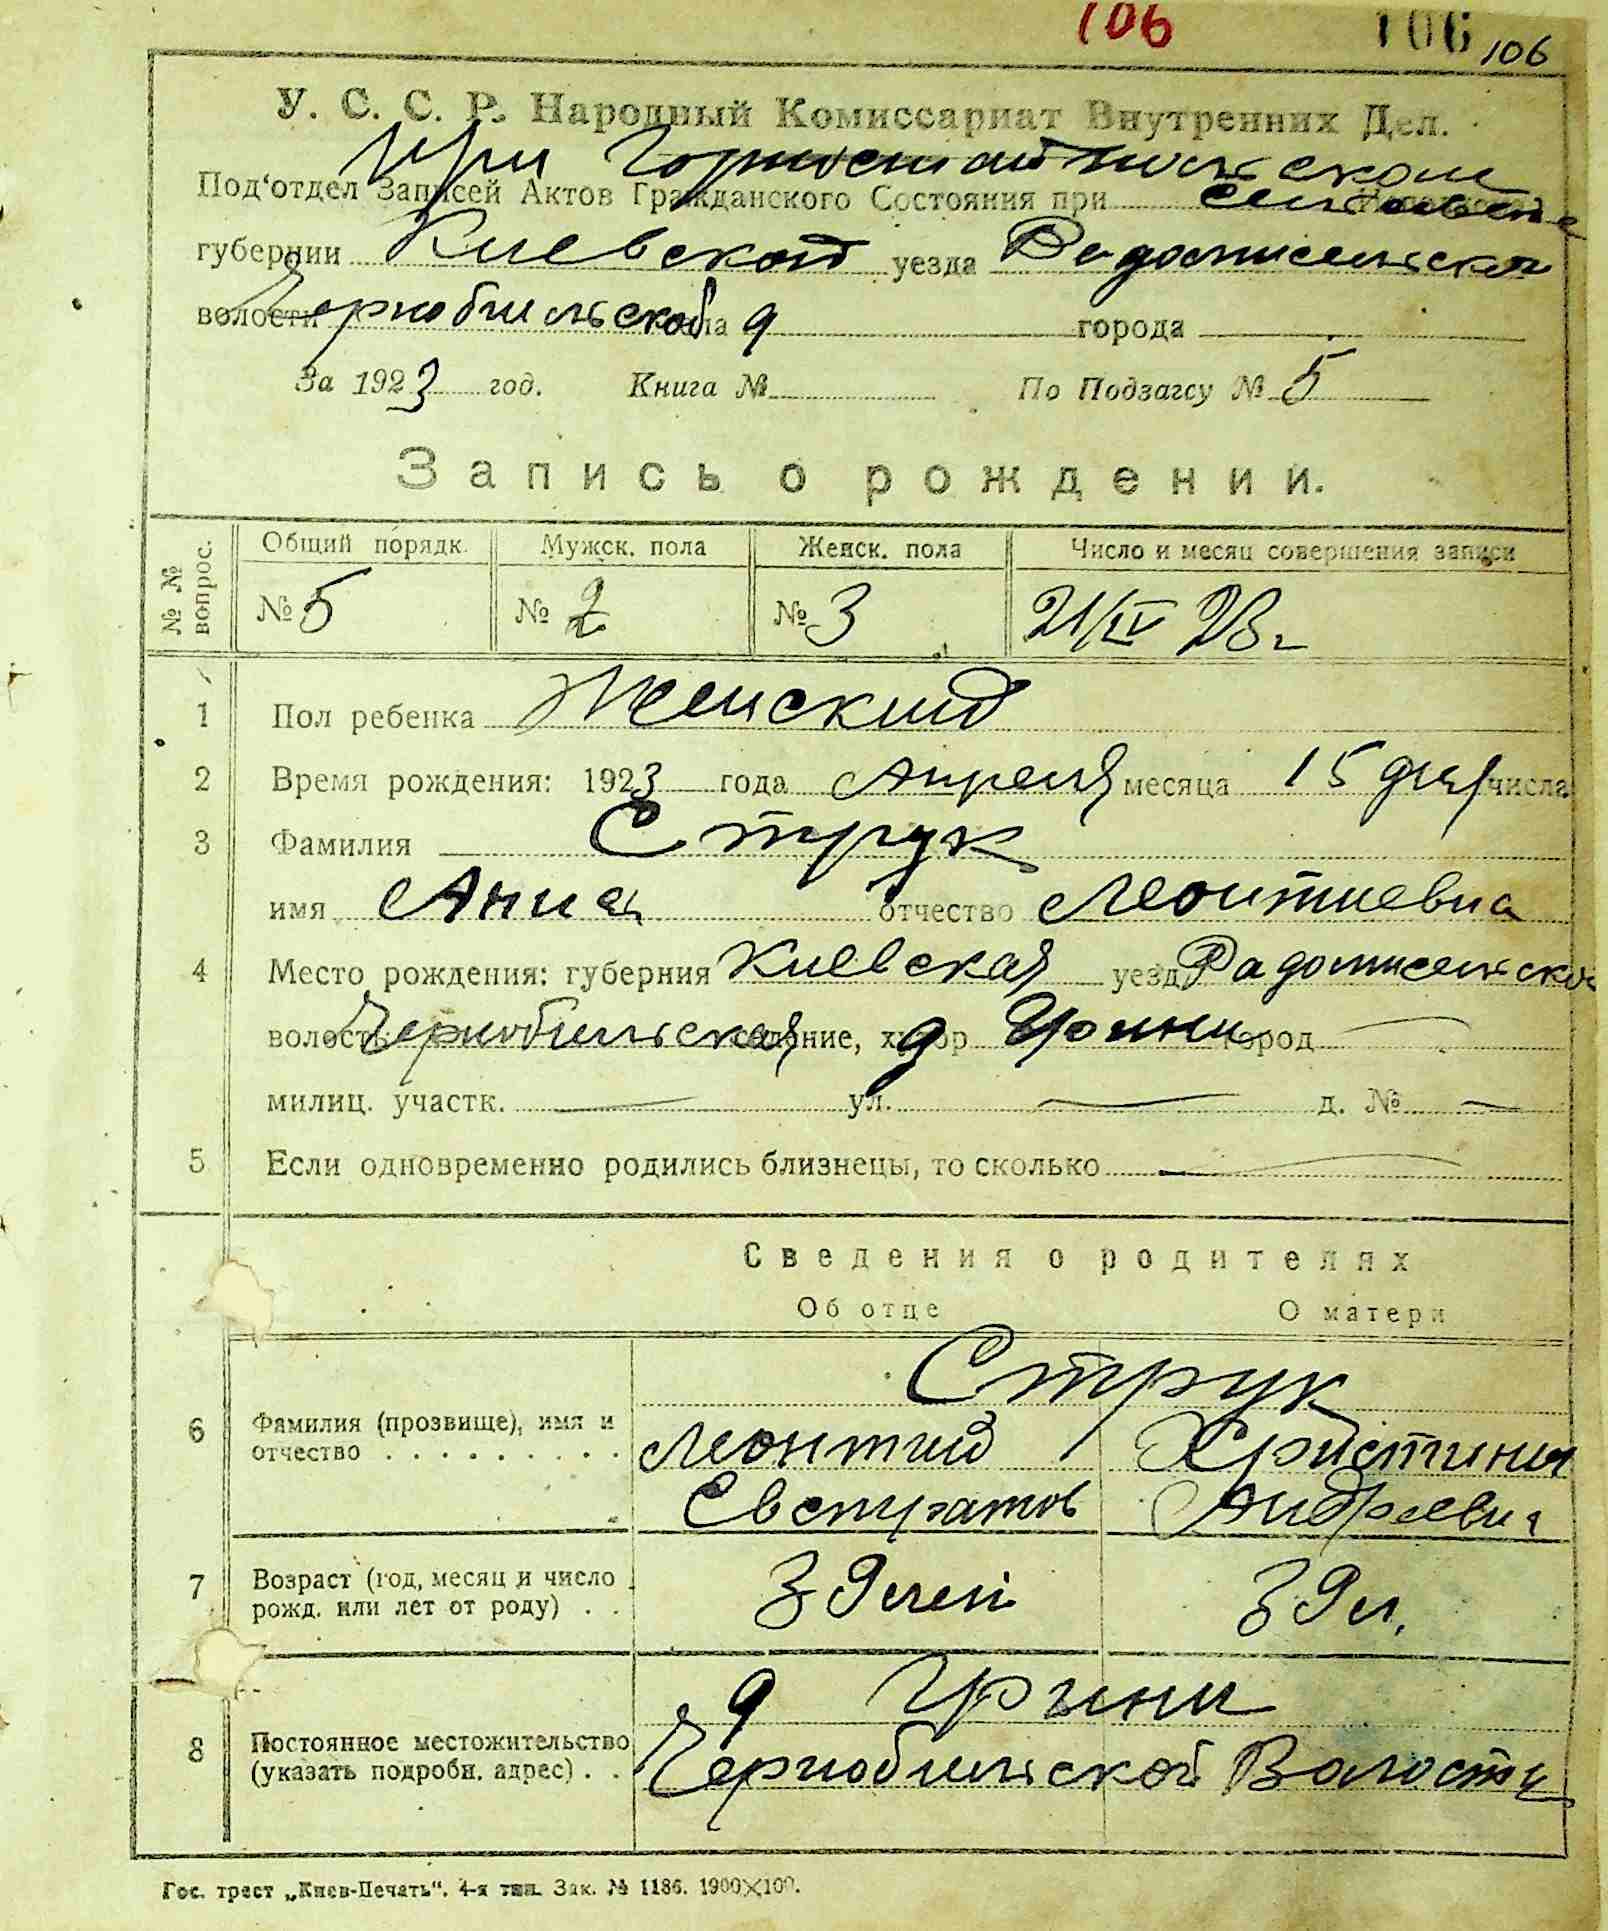 106 106 106
У. С. С. Р. Народный Комиссариат Внутренних Дел.
при Горностайпольском
Под‘отдел Записей Актов Гражданского Состояния при
губернии Киевской уезда Радомисельской
волости Чернобильской села д города
За 1923 год. Книга № По Подзагсу № 5
Запись о рождении.
№ № вопрос. Общий порядк. Мужск. пола Женск. пола Число и месяц совершения записи
№ 5 № 2 № 3 21/IV 23 г
1 Пол ребенка Женский
2 Время рождения: 1923 года Апреля месяца 15 дня числа
3 Фамилия Струк
имя Анна отчество Леонтиевна
4 Место рождения: губерния Киевская уезд Радомисельской
волость Чернобильская селение, хутор д Грини город —
милиц. участк. — ул. — д. № —
5 Если одновременно родились близнецы, то сколько —
Сведения о родителях
Об отце О матери
Струк
6 Фамилия (прозвище), имя и Леонтий Христина
отчество . . . . . . . . . Евстратов Андреевна
7 Возраст (год, месяц и число 39 лет 39 л.
рожд. или лет от роду) . .
д Грини
8 Постоянное местожительство Чернобильской Волости
(указать подробн. адрес) . .
Гос. трест „Киев-Печать“. 4-я тип. Зак. № 1186. 1900×100.